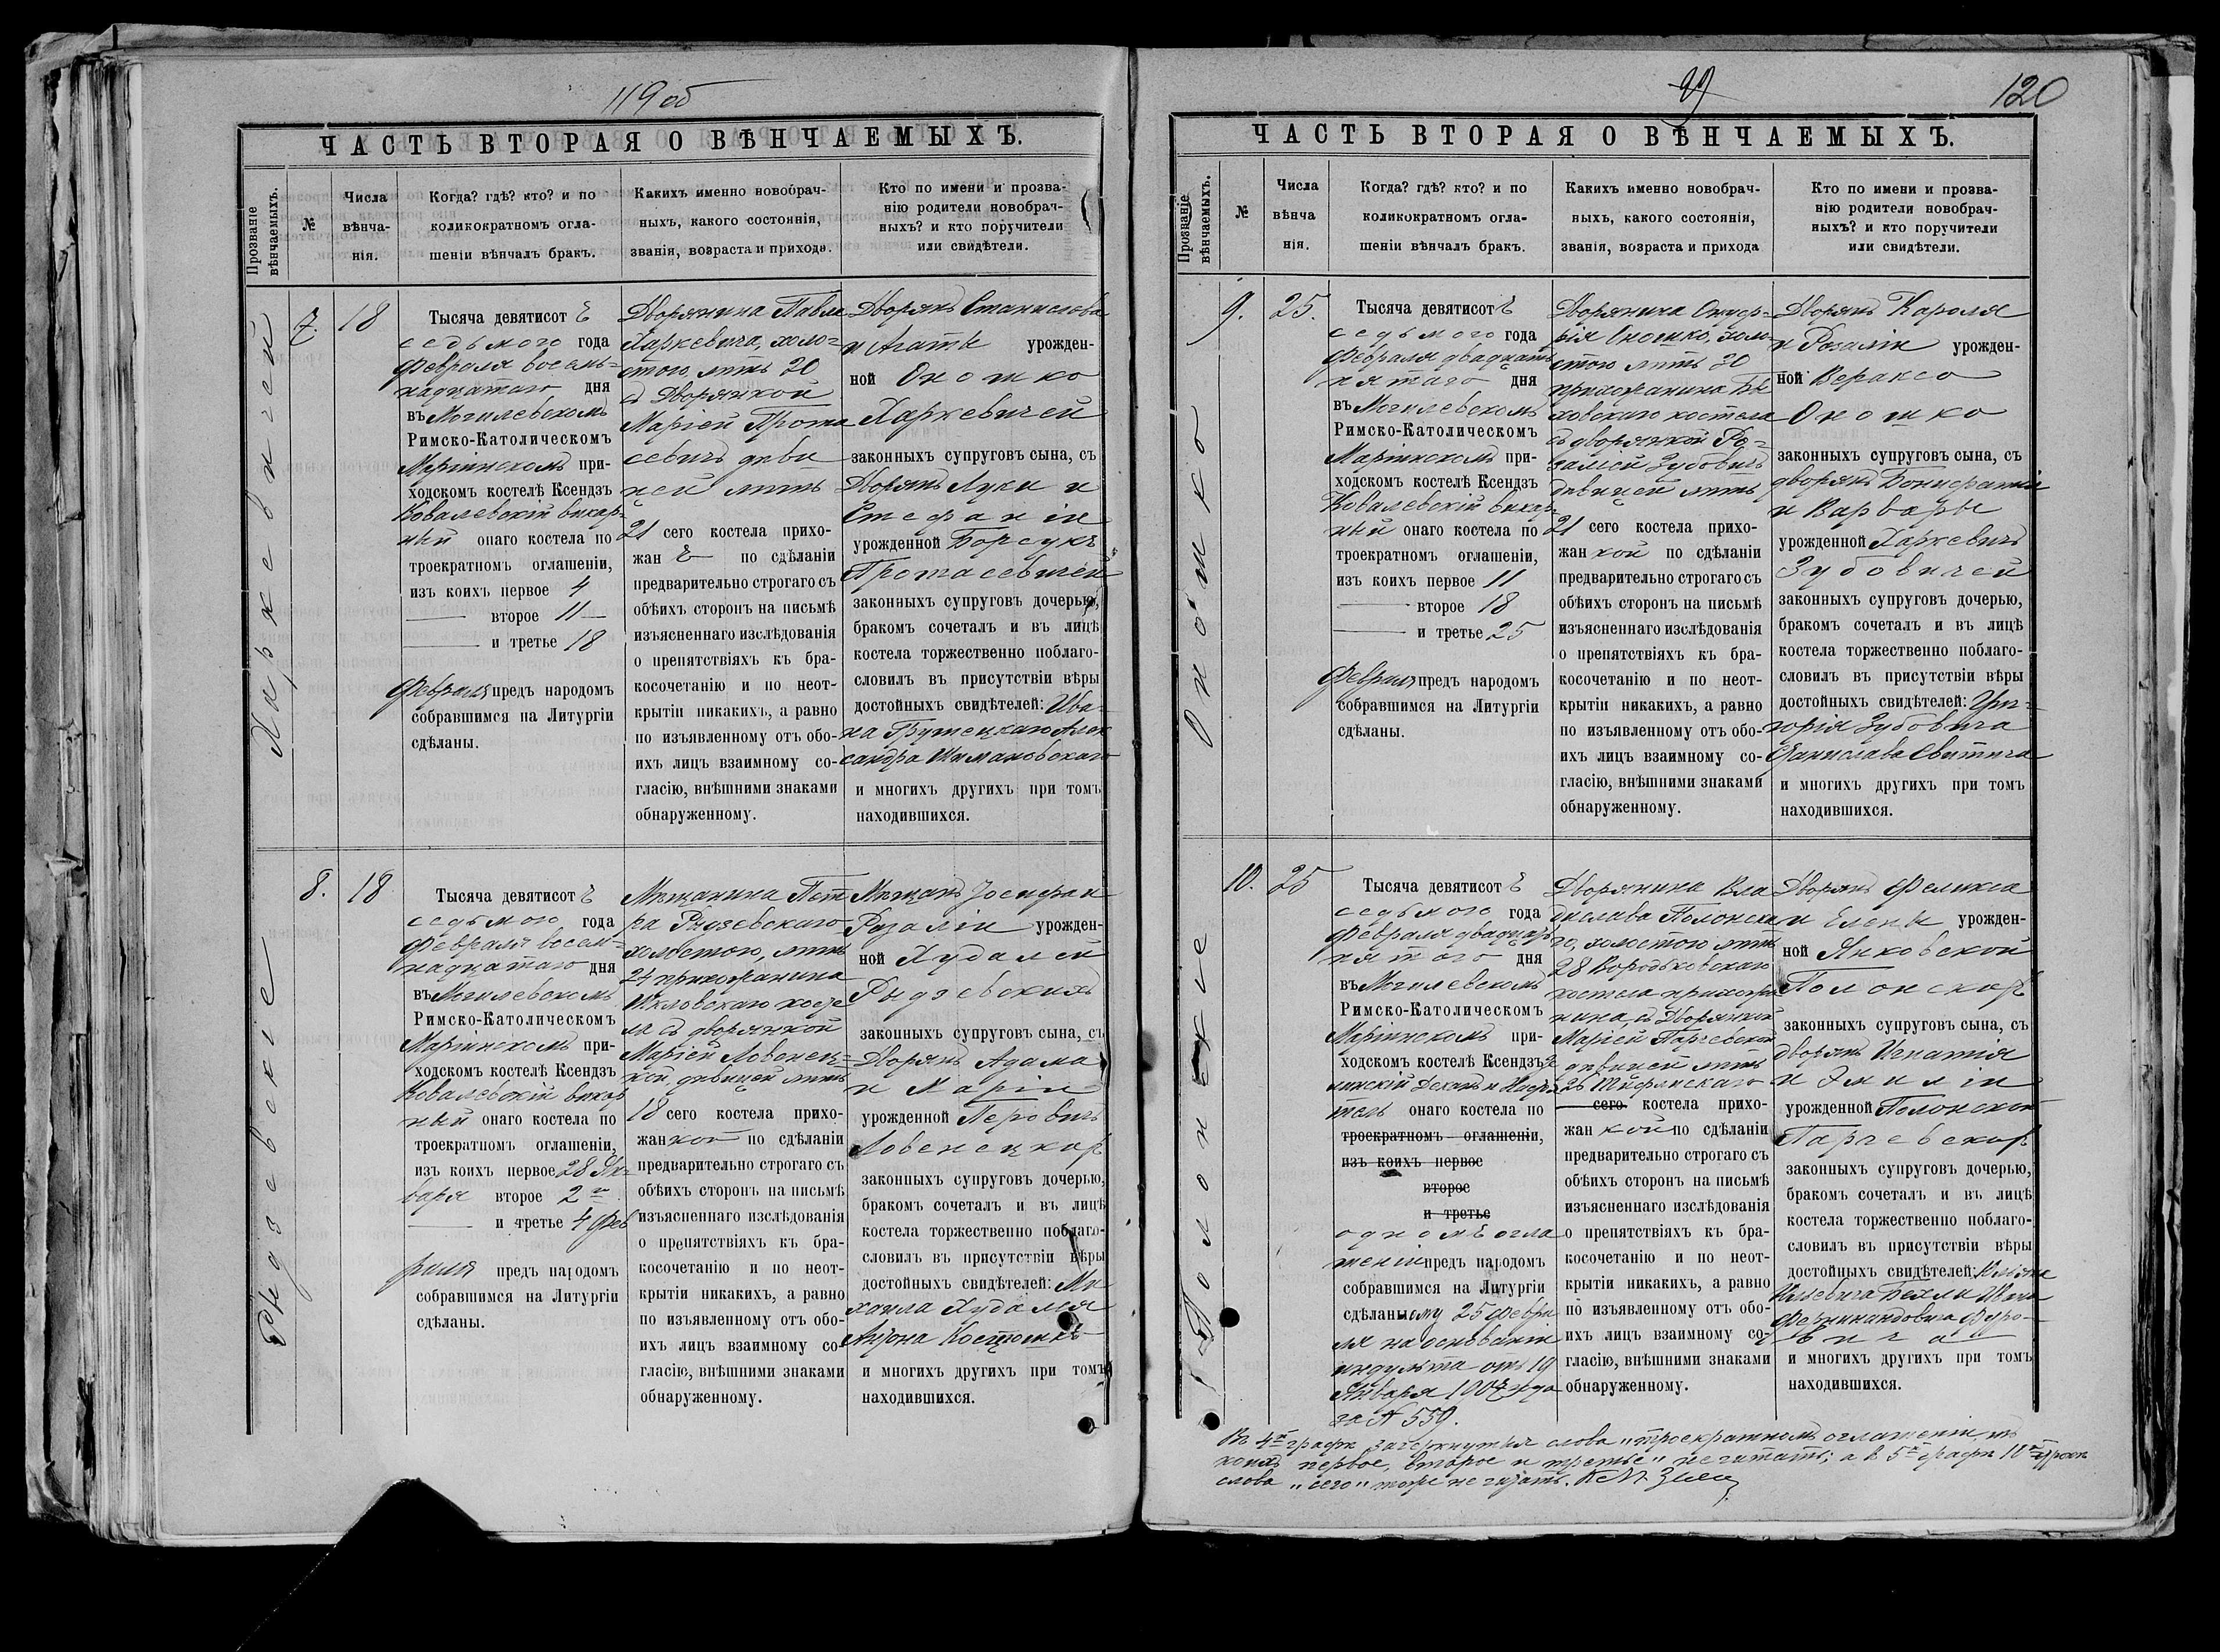 119 об
ЧАСТЬ ВТОРАЯ О ВѢНЧАЕМЫХЪ.
Прозваніе вѣнчаемыхъ.
№
Числа
вѣнча-
нія.
Когда? гдѣ? кто? и по
коликократномъ огла-
шеніи вѣнчалъ бракъ.
Какихъ именно новобрач-
ныхъ, какого состоянія,
званія, возраста и прихода.
Кто по имени и прозва-
нію родители новобрач-
ныхъ? и кто поручители
или свидѣтели.
Харкевичей
7.
18
Тысяча девятисот
седьмого года
Февраля восемь-
надцатаго дня
въ Могилевскомъ
Римско-Католическомъ
Маріинскомъ при-
ходскомъ костелѣ Ксендзъ
Ковалевскій викар-
ный онаго костела по
троекратномъ оглашеніи,
изъ коихъ первое 4
второе 11
и третье 18
Февраля предъ народомъ
собравшимся на Литургіи
сдѣланы.
Дворянина Павла
Харкевича, холо-
стого лѣтъ 20
съ Дворянкой
Маріей Прота
севичъ дѣви
цей лѣтъ
21 сего костела прихо-
жан по сдѣланіи
предварительно строгаго съ
обѣихъ сторонъ на письмѣ
изъясненнаго изслѣдованія
о препятствіяхъ къ бра-
косочетанію и по неот-
крытіи никакихъ, а равно
по изъявленному отъ обо-
ихъ лицъ взаимному со-
гласію, внѣшними знаками
обнаруженному.
Дворянъ Станислава
и Агаты урожден-
ной Оношко
Харкевичей
законныхъ супруговъ сына, съ
Дворянъ Луки и
Стефаніи
урожденной Борсукъ
Протасевичей
законныхъ супруговъ дочерью,
бракомъ сочеталъ и въ лицѣ
костела торжественно поблаго-
словилъ въ присутствіи вѣры
достойныхъ свидѣтелей: Ива-
на Бутецкаго Алек
сандра Шимановскаго
и многихъ другихъ при томъ
находившихся.
Рыдзевскіе
8.
18
Тысяча девятисот
седьмого года
Февраля восем-
надцатаго дня
въ Могилевскомъ
Римско-Католическомъ
Маріинскомъ при-
ходскомъ костелѣ Ксендзъ
Ковалевскій викар
ный онаго костела по
троекратномъ оглашеніи,
изъ коихъ первое 28 Ян-
варя второе 2го
и третье 4 Фев
раля предъ народомъ
собравшимся на Литургіи
сдѣланы.
Мѣщанина Пет
ра Рыдзевскаго
холостого, лѣтъ
24 прихожанина
Шкловскаго косте
ла съ дворянкой
Маріей Ловенец-
кой, дѣвицей лѣтъ
18 сего костела прихо-
жанкой по сдѣланіи
предварительно строгаго съ
обѣихъ сторонъ на письмѣ
изъясненнаго изслѣдованія
о препятствіяхъ къ бра-
косочетанію и по неот-
крытіи никакихъ, а равно
по изъявленному отъ обо-
ихъ лицъ взаимному со-
гласію, внѣшними знаками
обнаруженному.
Мѣщанъ Іосифа и
Розаліи урожден-
ной Худалей
Рыдзевскихъ
законныхъ супруговъ сына, съ
Дворянъ Адама
и Маріи
урожденной Перовичъ
Ловенецкихъ
законныхъ супруговъ дочерью,
бракомъ сочеталъ и въ лицѣ
костела торжественно поблаго-
словилъ въ присутствіи вѣры
достойныхъ свидѣтелей: Ми
хаила Худалея
Антона Костюшкѣ
и многихъ другихъ при томъ
находившихся.
99
120
ЧАСТЬ ВТОРАЯ О ВѢНЧАЕМЫХЪ.
Прозваніе вѣнчаемыхъ.
№
Числа
вѣнча
нія.
Когда? гдѣ? кто? и по
коликократномъ огла-
шеніи вѣнчалъ бракъ.
Какихъ именно новобрач-
ныхъ, какого состоянія,
званія, возраста и прихода
Кто по имени и прозва-
нію родители новобрач-
ныхъ? и кто поручители
или свидѣтели.
Оношко
9.
25.
Тысяча девятисот
седьмого года
Февраля двадцать
пятаго дня
въ Могилевскомъ
Римско-Католическомъ
Маріинскомъ при-
ходскомъ костелѣ Ксендзъ
Ковалевскій викар-
ный онаго костела по
троекратномъ оглашеніи,
изъ коихъ первое 11
второе 18
и третье 25
Февраля предъ народомъ
собравшимся на Литургіи
сдѣланы.
Дворянина Онуф-
рія Оношко, холо-
стого лѣтъ 30
прихожанина Бы
ховскаго костела
съ дворянкой Ро-
заліей Зубовичъ
дѣвицей лѣтъ
21 сего костела прихо-
жанкой по сдѣланіи
предварительно строгаго съ
обѣихъ сторонъ на письмѣ
изъясненнаго изслѣдованія
о препятствіяхъ къ бра-
косочетанію и по неот-
крытіи никакихъ, а равно
по изъявленному отъ обо-
ихъ лицъ взаимному со-
гласію, внѣшними знаками
обнаруженному.
Дворянъ Кароля
и Розаліи урожден-
ной Вераксо
Оношко
законныхъ супруговъ сына, съ
дворянъ Бонифатія
и Варвары
урожденной Харкевичъ
Зубовичей
законныхъ супруговъ дочерью,
бракомъ сочеталъ и въ лицѣ
костела торжественно поблаго-
словилъ въ присутствіи вѣры
достойныхъ свидѣтелей: Гри-
горія Зубовича
Станислава Свитича
и многихъ другихъ при томъ
находившихся.
Полонскіе
10.
25
Тысяча девятисот
седьмого года
Февраля двадцать
пятого дня
въ Могилевскомъ
Римско-Католическомъ
Маріинскомъ при-
ходскомъ костелѣ Ксендзъ
Декан и Насто
тель онаго костела по
троекратномъ оглашеніи,
изъ коихъ первое
второе
и третье
одномъ огла
шеніи предъ народомъ
собравшимся на Литургіи
сдѣланному 25 Февра
ля на основаніи
индульта отъ 19
Января 1907 года
за № 559.
Дворянина Вла
дислава Полонска
го, холостого лѣтъ
28 Бородьковскаго
костела прихожа
нина, съ Дворянкой
Маріей Парчевской
дѣвицей лѣтъ
сего костела прихо-
жанкой по сдѣланіи
предварительно строгаго съ
обѣихъ сторонъ на письмѣ
изъясненнаго изслѣдованія
о препятствіяхъ къ бра-
косочетанію и по неот-
крытіи никакихъ, а равно
по изъявленному отъ обо-
ихъ лицъ взаимному со-
гласію, внѣшними знаками
обнаруженному.
Дворянъ Феликса
и Елены урожден-
ной Янковской
Полонскихъ
законныхъ супруговъ сына, съ
дворянъ Игнатія
и Эмиліи
урожденной Полонской
Парчевскихъ
законныхъ супруговъ дочерью,
бракомъ сочеталъ и въ лицѣ
костела торжественно поблаго-
словилъ въ присутствіи вѣры
достойныхъ свидѣтелей:
Фердинандовича
и многихъ другихъ при томъ
находившихся.
Въ 4й графѣ зачеркнутыя слова „троекратномъ оглашеніи, изъ
коихъ первое, второе и третье" не читать; а въ 5й графѣ 10й
слова „сего" тоже не читать.